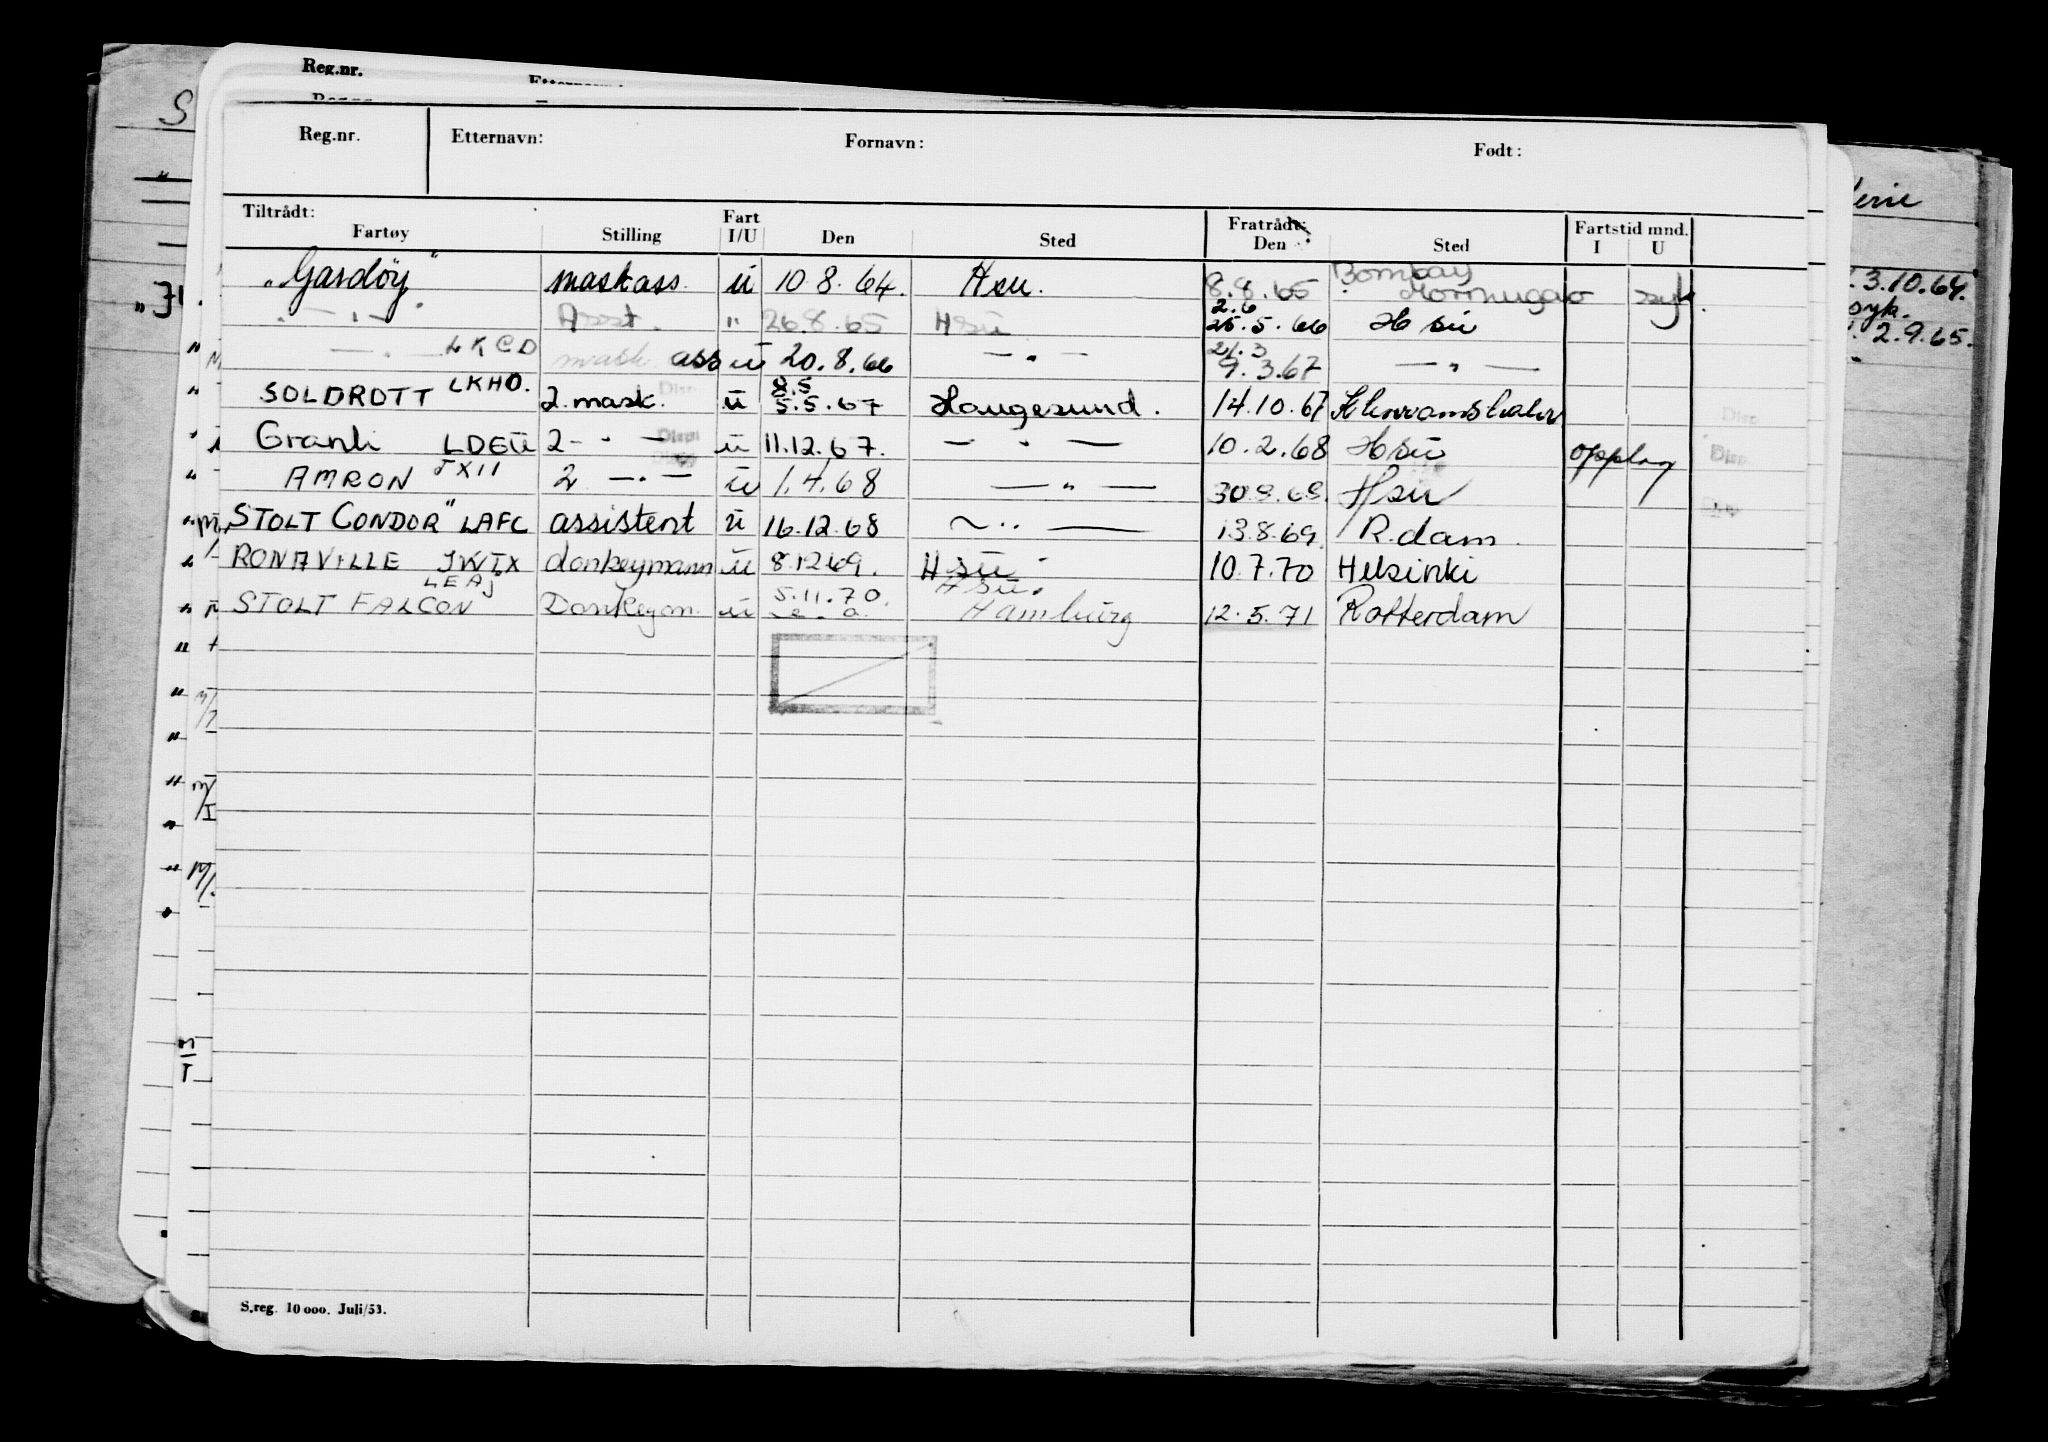 Reg.nr.
Reg.nr. Etternavn: Fornavn: Født:
Tiltrådt: Fart Fratrådt: Fartstid mnd.
Fartøy Stilling I/U Den Sted Den Sted I U
"Gardöy" maskass. ü 10.8.64. Hsu. 8.8.65 Bombay Mormugao syk.
— " — Asst. " 26.8.65 Hsu 2.6 25.5.66 Hsu
— " — LKCD mask ass ü 20.8.66 — " — 21.3 9.3.67 — " —
SOLDROTT LKHO. 2. mask. ü 8.5 5.5.67 Haugesund. 14.10.67
Granli LDEU 2 — " — ü 11.12.67. — " — 10.2.68 Hsu opplag
AMRON JXII 2 — " — ü 1.4.68 — " — Hsu
STOLT CONDOR" LAFC assistent ü 16.12.68 — " — 13.8.69. R.dam.
RONAVILLE JWTX donkeymann ü 8.12 69. Hsu 10.7.70 Helsinki
STOLT FALCON LEAJ Donkeym. ü 5.11.70. Hsu. Hamburg 12.5.71 Rotterdam
S.reg. 10 000. Juli/53.
3.10.64.
syk.
2.9.65.